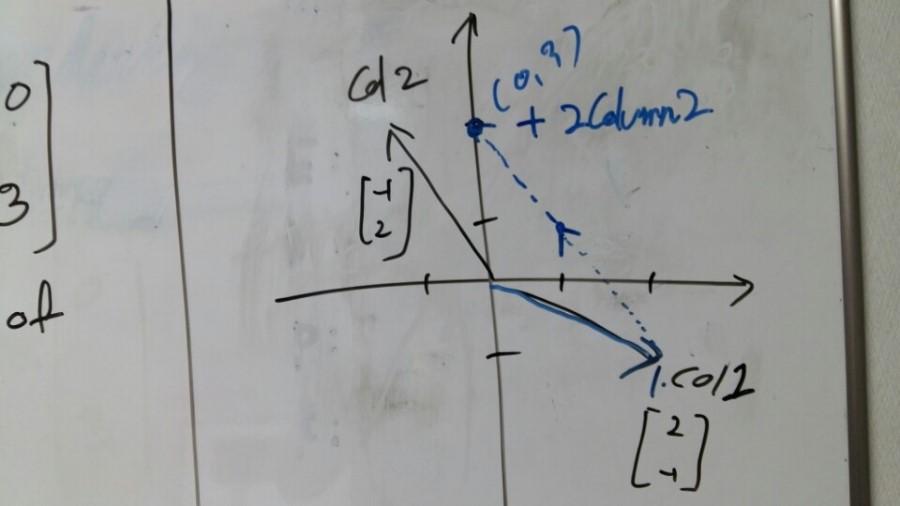 0
3
of
Col 2
[-1
2]
(0,3)
+ 2Column2
1.Col1
[2
-1]